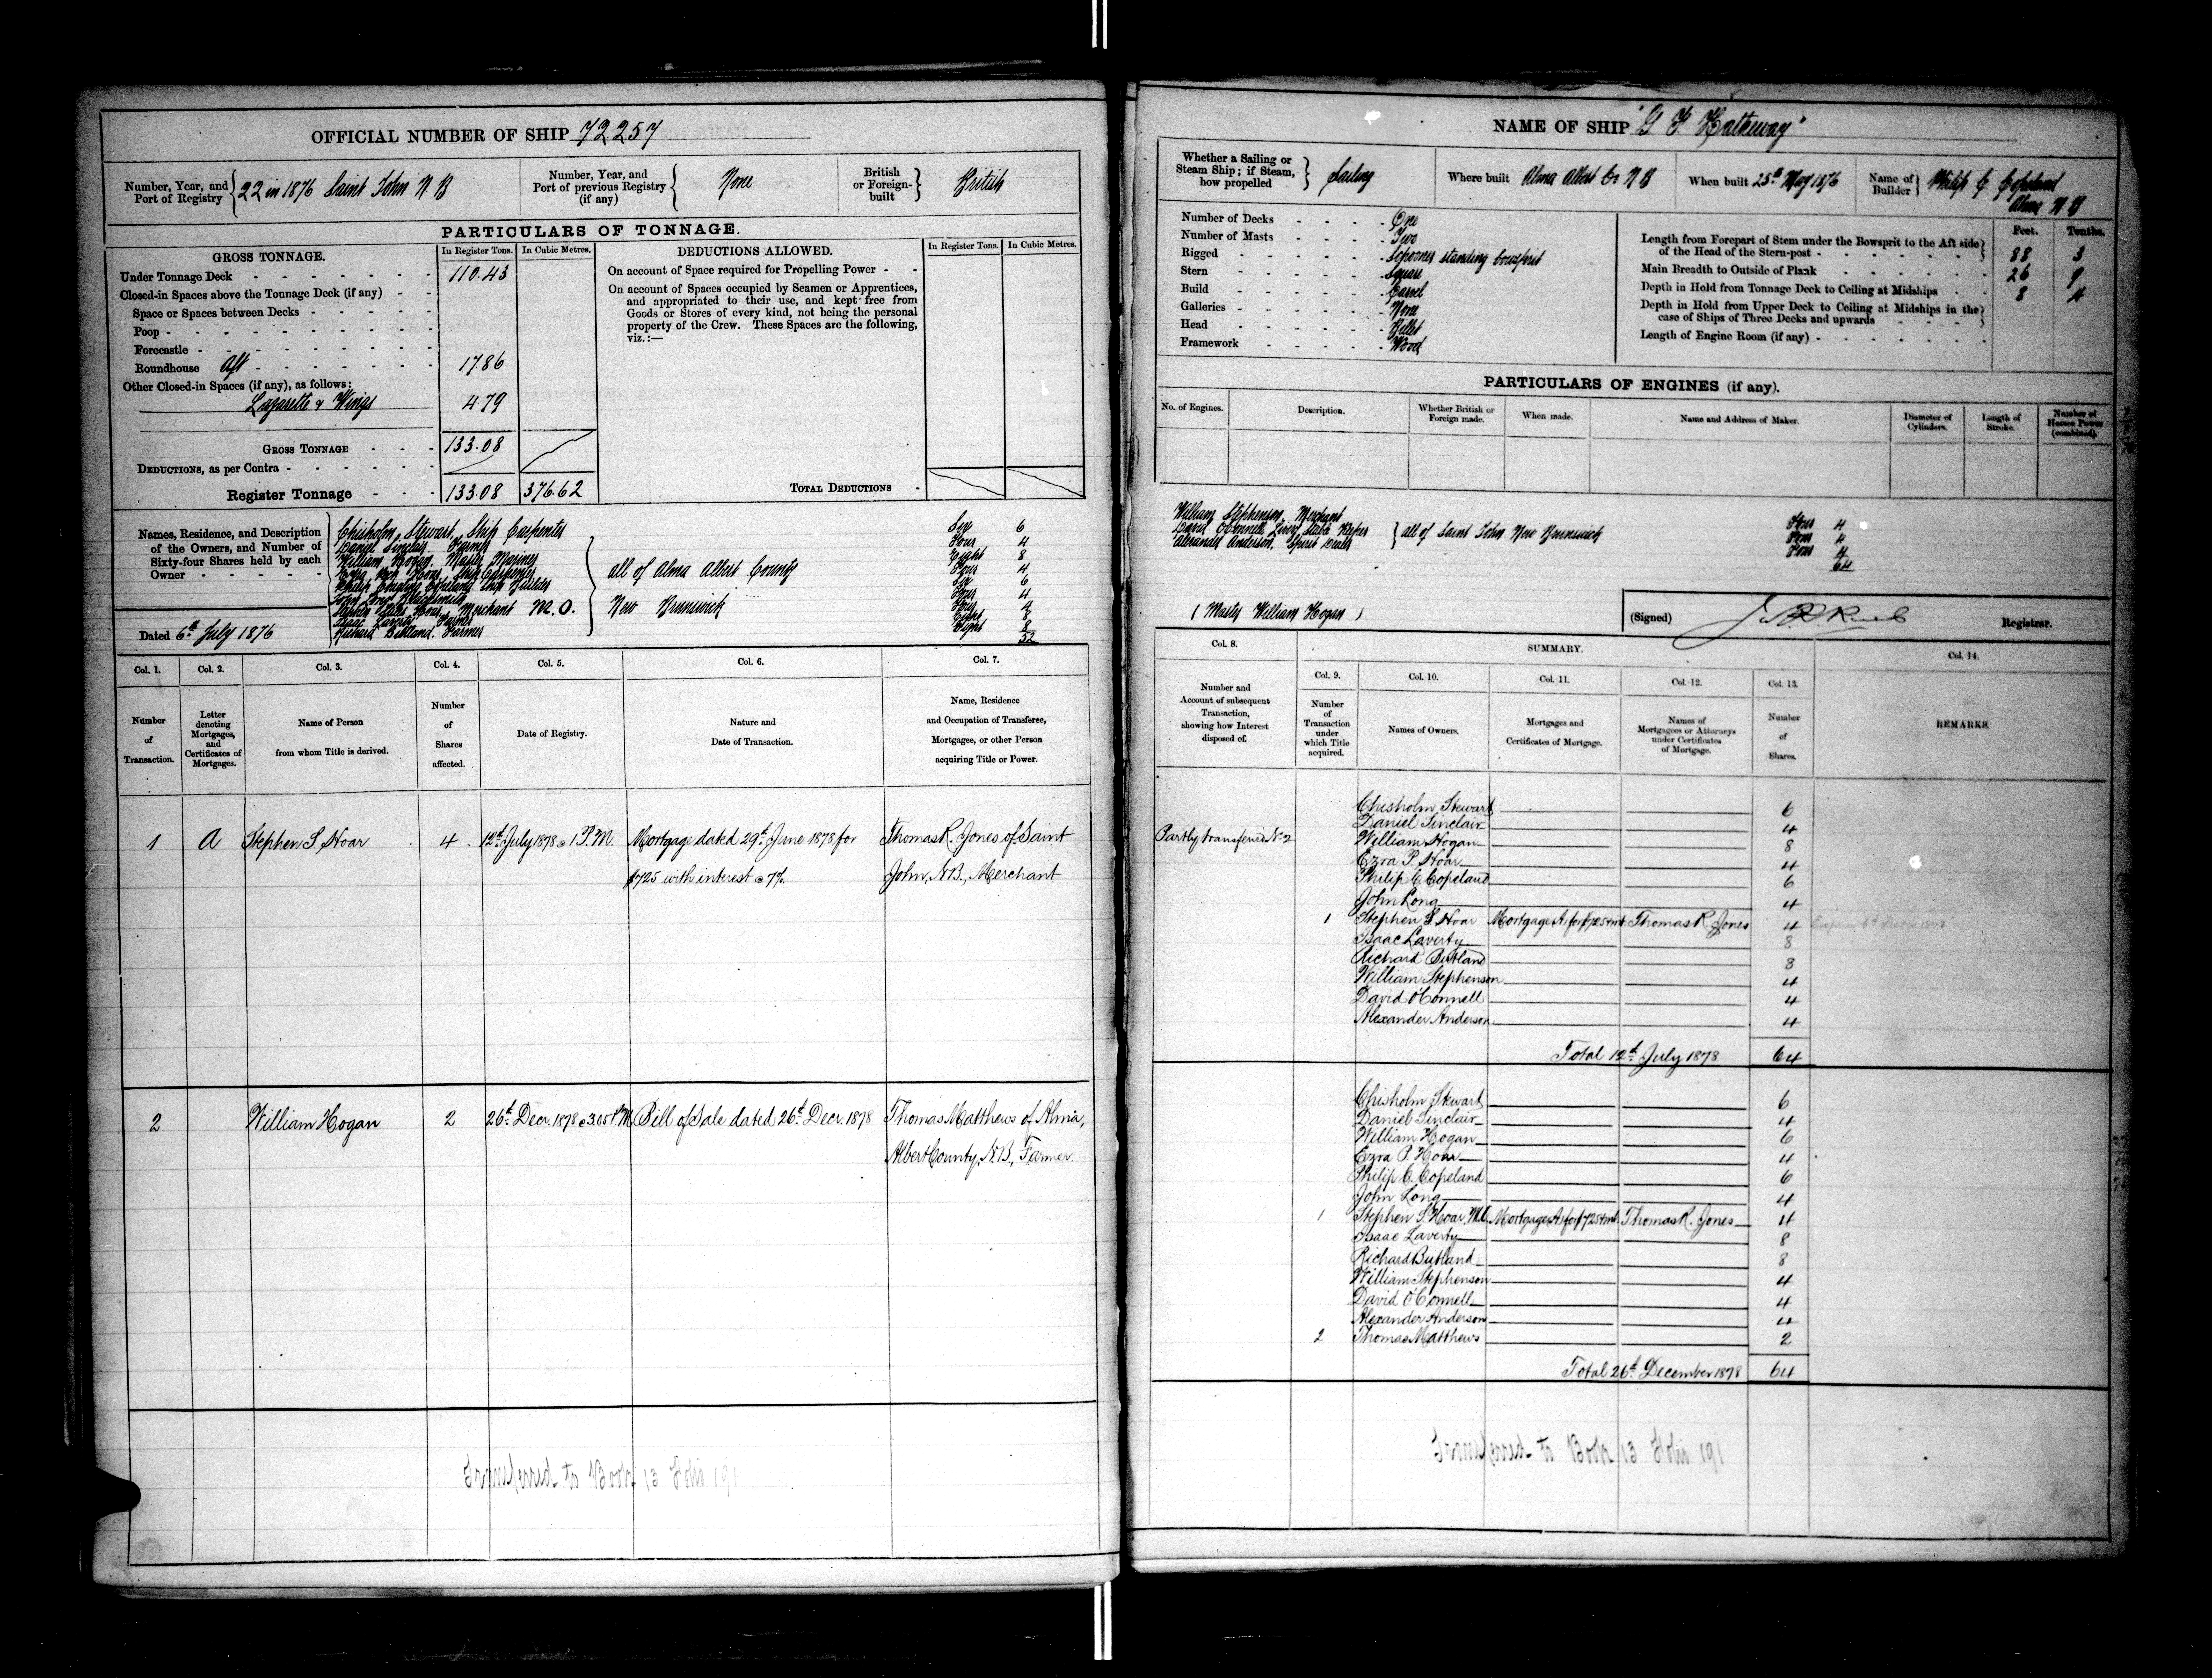 OFFICIAL NUMBER OF SHIP 72257
Number, Year, and Port of Registry 22 in 1876 Saint John N B
Number, Year, and Port of previous Registry (if any) None
British or Foreign-built British
PARTICULARS OF TONNAGE.
GROSS TONNAGE. In Register Tons. In Cubic Metres.
Under Tonnage Deck 110.43
Closed-in Spaces above the Tonnage Deck (if any)
Space or Spaces between Decks
Poop
Forecastle
Roundhouse Aft 17.86
Other Closed-in Spaces (if any), as follows:
Lazarette & Wings 4.79
GROSS TONNAGE 133.08
DEDUCTIONS, as per Contra
Register Tonnage 133.08 376.62
DEDUCTIONS ALLOWED. In Register Tons. In Cubic Metres.
On account of Space required for Propelling Power
On account of Spaces occupied by Seamen or Apprentices,
and appropriated to their use, and kept free from
Goods or Stores of every kind, not being the personal
property of the Crew. These Spaces are the following,
viz.:—
TOTAL DEDUCTIONS
Names, Residence, and Description
of the Owners, and Number of
Sixty-four Shares held by each
Owner
Chisholm Stewart, Ship Carpenter Six 6
Daniel Sinclair, Farmer Four 4
William Hogan, Master Mariner Eight 8
Ezra Hoar, Ship Carpenter Four 4
Philip Copeland Ship Builder Six 6
John Long 4
Hoar, Merchant M.O. Four 4
Isaac Laverty Farmer Eight 8
Richard Butland. Farmer Eight 8
52
all of Alma Albert County
New Brunswick
Dated 6th July 1876
Col. 1. Number of Transaction.
Col. 2. Letter denoting Mortgages, and Certificates of Mortgages.
Col. 3. Name of Person from whom Title is derived.
Col. 4. Number of Shares affected.
Col. 5. Date of Registry.
Col. 6. Nature and Date of Transaction.
Col. 7. Name, Residence and Occupation of Transferee, Mortgagee, or other Person acquiring Title or Power.
1 A Stephen S Hoar 4 12th July 1878 @ 1 P.M. Mortgage dated 29th June 1878 for Thomas R. Jones of Saint
$725 with interest @ 7% John, N.B., Merchant
2 William Hogan 2 26th Decr. 1878 @ 3.05 P.M. Bill of Sale dated 26th Decr. 1878 Thomas Matthews of Alma,
Albert County, N.B., Farmer
NAME OF SHIP "G F Hatheway"
Whether a Sailing or Steam Ship; if Steam, how propelled Sailing
Where built Alma Albert Co N B
When built 25th May 1876
Name of Builder Philip C Copeland
Alma N B
Number of Decks One
Number of Masts Two
Rigged Schooner standing bowsprit
Stern Square
Build Carvel
Galleries None
Head Billet
Framework Wood
Feet. Tenths.
Length from Forepart of Stem under the Bowsprit to the Aft side of the Head of the Stern-post 88 3
Main Breadth to Outside of Plank 26 9
Depth in Hold from Tonnage Deck to Ceiling at Midships 8 4
Depth in Hold from Upper Deck to Ceiling at Midships in the case of Ships of Three Decks and upwards
Length of Engine Room (if any)
PARTICULARS OF ENGINES (if any).
No. of Engines. Description. Whether British or Foreign made. When made. Name and Address of Maker. Diameter of Cylinders. Length of Stroke. Number of Horses Power (combined).
William Stephenson, Merchant Four 4
David O'Connell, Livery Stable Keeper Four 4
Alexander Anderson, Spirit Dealer Four 4
64
all of Saint John New Brunswick
(Master William Hogan)
(Signed) Registrar.
Col. 8. Number and Account of subsequent Transaction, showing how Interest disposed of.
SUMMARY.
Col. 9. Number of Transaction under which Title acquired.
Col. 10. Names of Owners.
Col. 11. Mortgages and Certificates of Mortgage.
Col. 12. Names of Mortgagees or Attorneys under Certificates of Mortgage.
Col. 13. Number of Shares.
Col. 14. REMARKS.
Partly transferred No 2
Chisholm Stewart 6
Daniel Sinclair 4
William Hogan 8
Ezra P. Hoar 4
Philip C Copeland 6
John Long 4
1 Stephen S Hoar Mortgage A for $725 & int Thomas R. Jones 4
Isaac Laverty 8
Richard Butland 8
William Stephenson 4
David O'Connell 4
Alexander Anderson 4
Total 12th July 1878 64
Chisholm Stewart 6
Daniel Sinclair 4
William Hogan 6
Ezra P. Hoar 4
Philip C. Copeland 6
John Long 4
1 Stephen S Hoar, M.O. Mortgage A for $725 & int. Thomas R. Jones 4
Isaac Laverty 8
Richard Butland 8
William Stephenson 4
David O'Connell 4
Alexander Anderson 4
2 Thomas Matthews 2
Total 26th December 1878 64